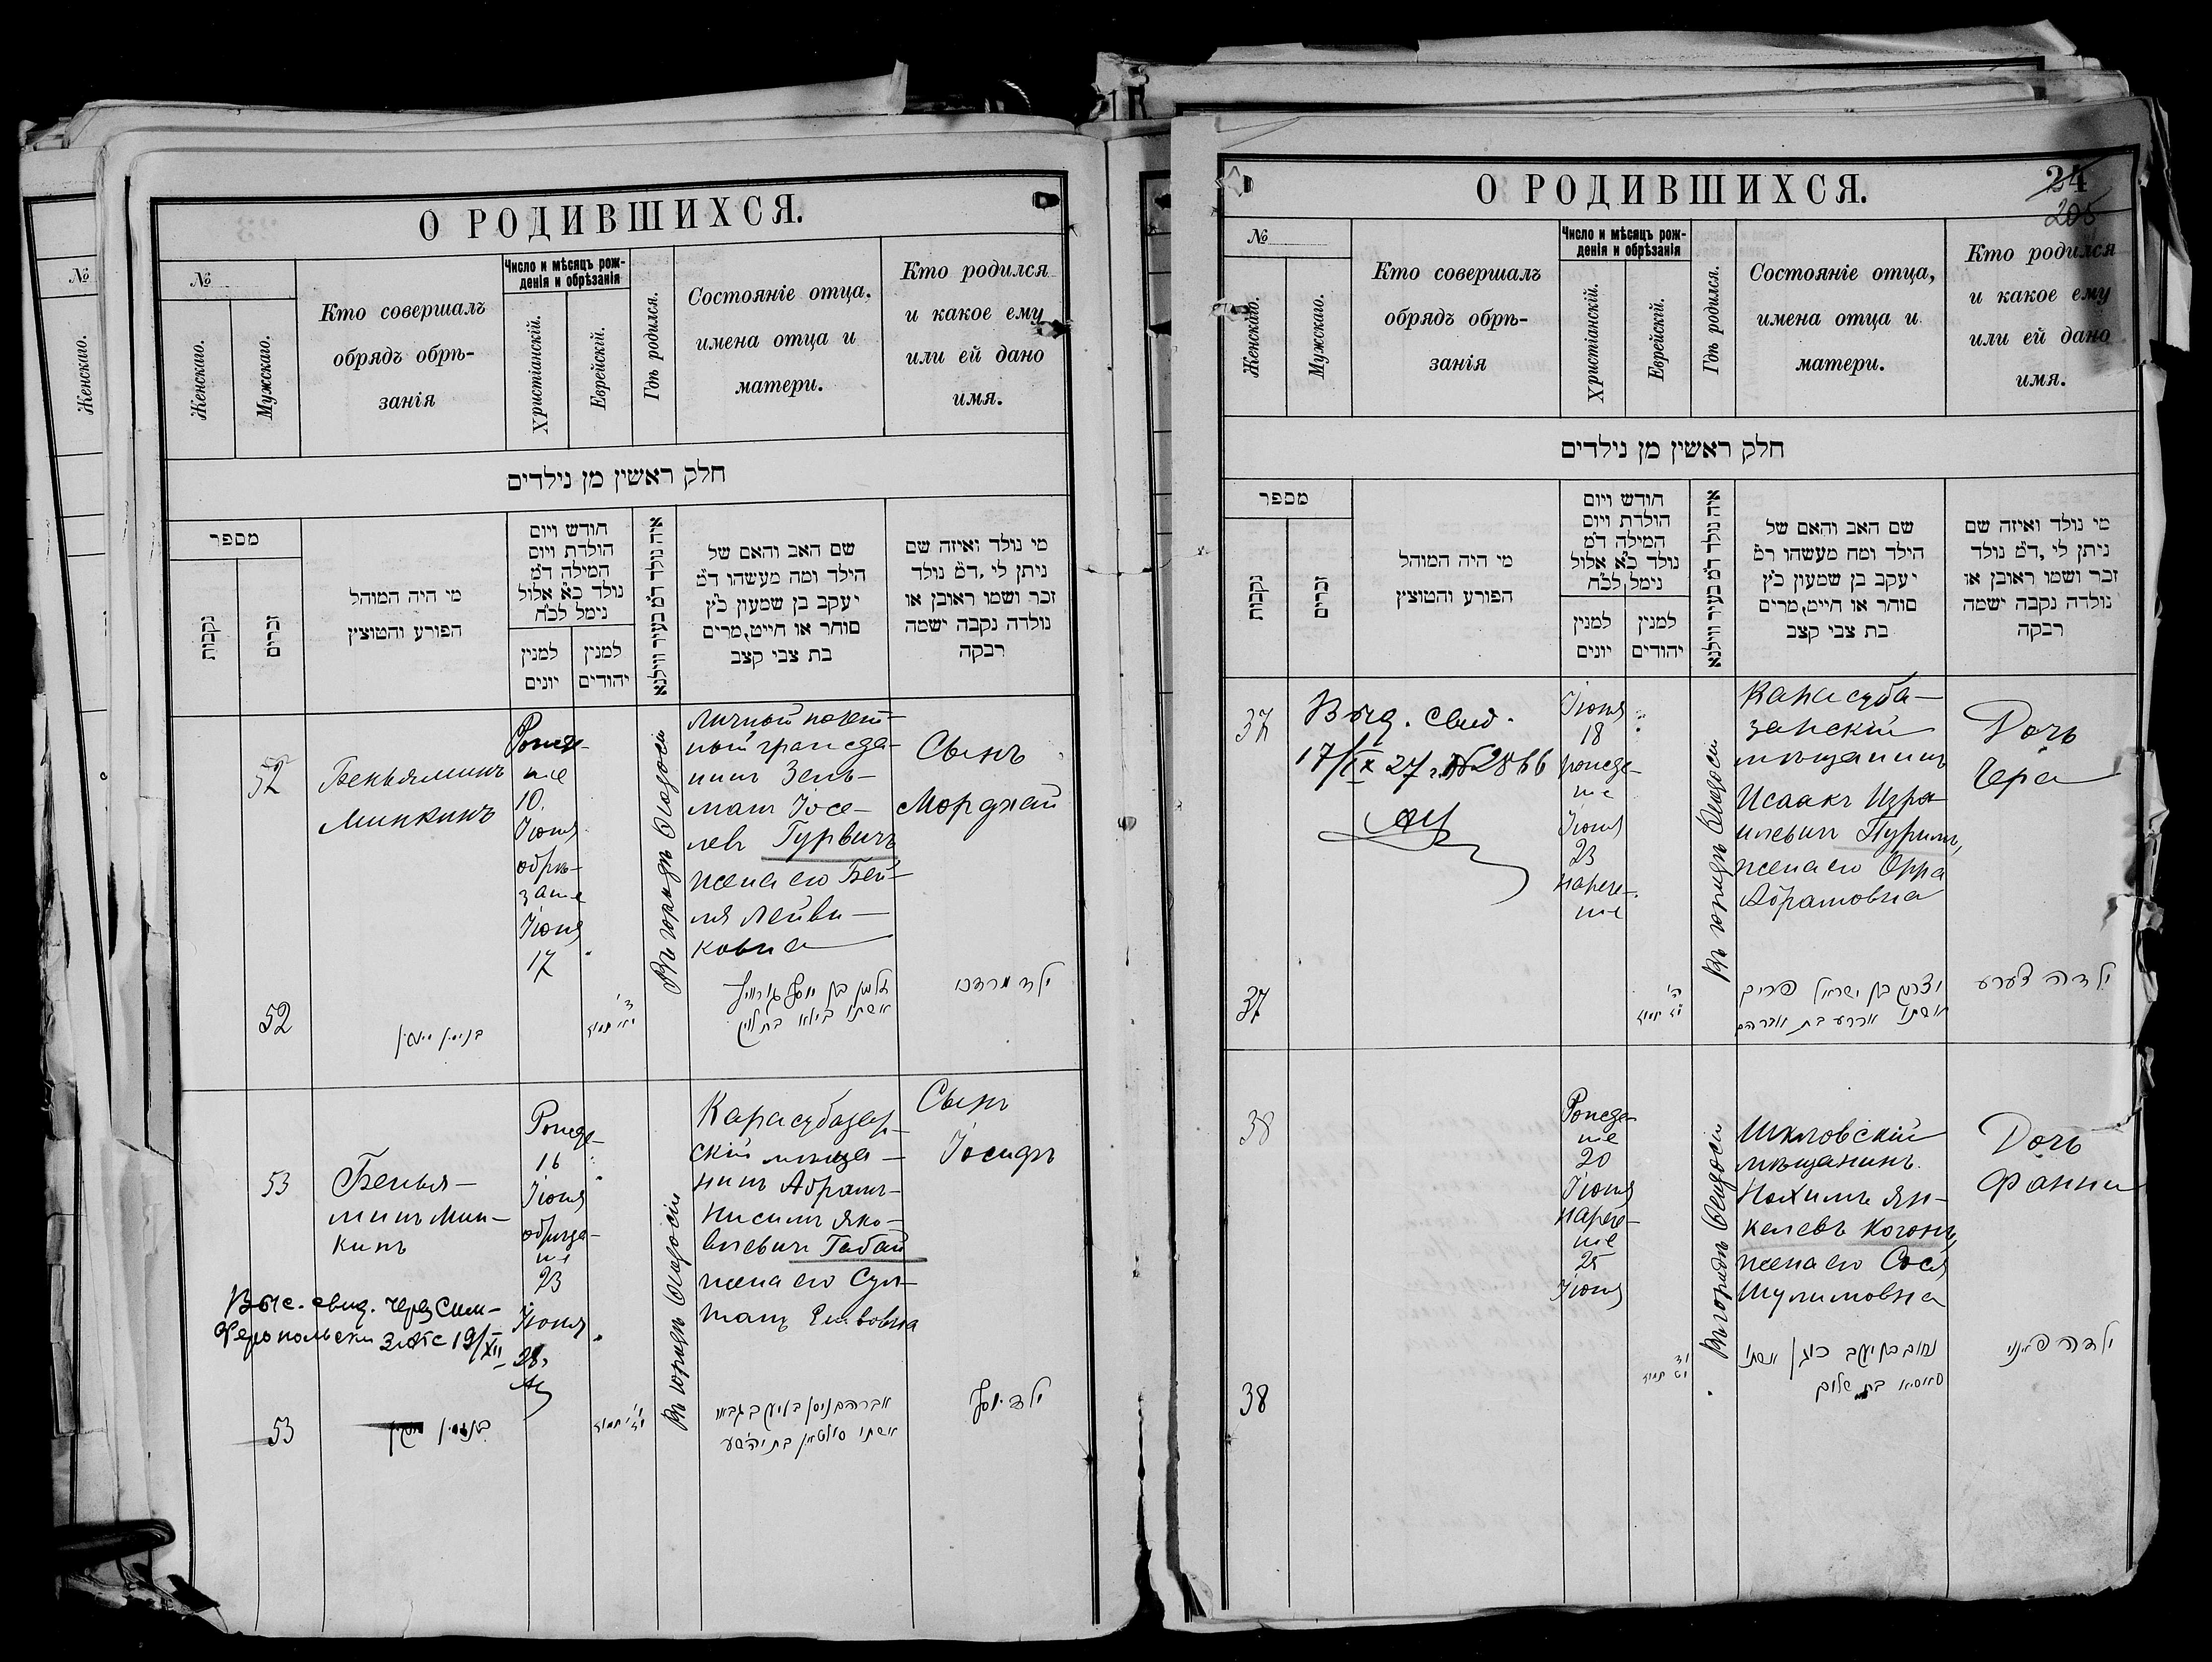 О РОДИВШИХСЯ.
№
№
Женскаго.
Женскаго.
Мужскаго.
Кто совершалъ
обрядъ обрѣ-
занія
Число и мѣсяцъ рож-
денія и обрѣзанія
Христіанскій.
Еврейскій.
Гдѣ родился.
Состояніе отца,
имена отца и
матери.
Кто родился
и какое ему
или ей дано
имя.
חלק ראשין מן נילדים
מספר
נקבות
זכרים
מי היה המוהל
הפורע והמוצץ
חודש ויום
הולדת ויום
המילה ד״מ
נולד כ״א אלול
נימל לכ״ח
למנין
יונים
למנין
יהודים
איה נולד ד״מ בעיר ווילנא
שם האב והאם של
הילד ומה מעשהו ד״מ
יעקב בן שמעון כ״ץ
סוחר או חייט,מרים
בת צבי קצב
מי נולד ואיזה שם
ניתן לי ,ד״מ נולד
זכר ושמו ראובן או
נולדה נקבה ישמה
רבקה
52
Беньяминъ
Минкинъ
Рожде-
ніе
10.
Іюня
обрѣ-
заніе
Іюня
17
Въ городѣ Ѳеодосіи
личный почет-
ный гражда-
нинъ Зель-
манъ Іосе-
левъ Гурвичъ
жена его Бей-
ля Лейви-
ковна
Сынъ
Мордхай
52
זלמן בן יוסף גורוויץ
ילד מרדכי
53
Бенья-
минъ Мин-
кинъ
Рожде-
16
Іюня
обрѣза-
ніе
23
Іюня
Въ городѣ Ѳеодосіи
Карасубазар-
скій мѣща-
нинъ Абрамъ-
Нисимъ Яко-
влевичъ Габай
жена его Сул-
танъ
Сынъ
Іосифъ
Выс. свид. через Сим-
феропольски загс 19/XII
28г
53
ילד יוסף
О РОДИВШИХСЯ.
24
205
№
Женскаго.
Мужскаго.
Кто совершалъ
обрядъ обрѣ-
занія
Число и мѣсяцъ рож-
денія и обрѣзанія
Христіанскій.
Еврейскій.
Гдѣ родился.
Состояніе отца,
имена отца и
матери.
Кто родился
и какое ему
или ей дано
имя.
חלק ראשין מן נילדים
מספר
נקבות
זכרים
מי היה המוהל
הפורע והמוצץ
חודש ויום
הולדת ויום
המילה ד״מ
נולד כ״א אלול
נימל לכ״ח
למנין
יונים
למנין
יהודים
איה נולד ד״מ בעיר ווילנא
שם האב והאם של
הילד ומח מעשהו ד״מ
יעקב בן שמעון כ״ץ
סוחר או חייט,מרים
בת צבי קצב
מי נולד ואיזה שם
ניתן לי ,ד״מ נולד
זכר ושמו ראובן או
נולדה נקבה ישמה
רבקה
37
Выд. свид.
17/IX 27 г. №2866
Іюня
18
рожде-
ніе
Іюня
23
нарече-
ніе
Въ городѣ Ѳеодосіи
Карасуба-
зарскій
мѣщанинъ
Исаакъ Изра-
илевичъ Пуримъ,
жена его Орра
Абрамовна
Дочь
Чера
37
יצחק בן ישראל פורים
ואשתו אררע בת אברהם
38
Рожде-
ніе
20
Іюня
нарече-
ніе
25
Іюня
Въ городѣ Ѳеодосіи
Шкловскій
мѣщанинъ
Нохимъ Ян-
келевъ Когонъ,
жена его Сося
Шулимовна
Дочь
Фанни
38
נחום בן יעקב כוגן ואשתו
סאסיא בת שלום